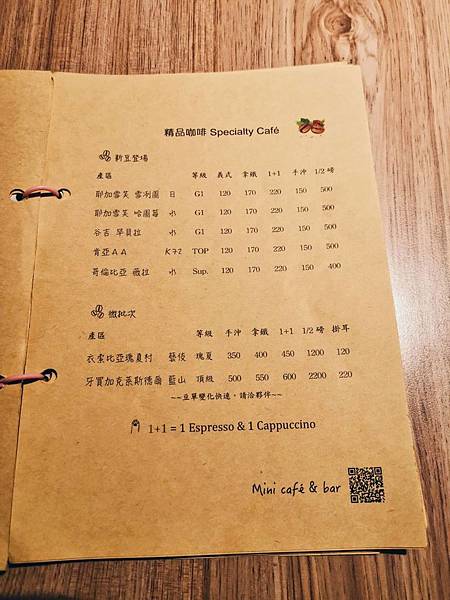 精品咖啡 Specialty Café
新豆登場
產區 等級 義式 拿鐵 1+1 手沖 1/2 磅
耶加雪芙 雪冽圖 日 G1 120 170 220 150 500
耶加雪芙 哈圖莓 水 G1 120 170 220 150 500
谷吉 罕貝拉 水 G1 120 170 220 150 500
肯亞AA K72 TOP 120 170 220 150 500
哥倫比亞 薇拉 水 Sup. 120 170 220 150 400
微批次
產區 等級 手沖 拿鐵 1+1 1/2 磅 掛耳
衣索比亞瑰夏村 藝伎 瑰夏 350 400 450 1200 120
牙買加克萊斯德爾 藍山 頂級 500 550 600 2200 220
~~豆單變化快速，請洽夥伴~~
1+1 = 1 Espresso & 1 Cappuccino
Mini café & bar